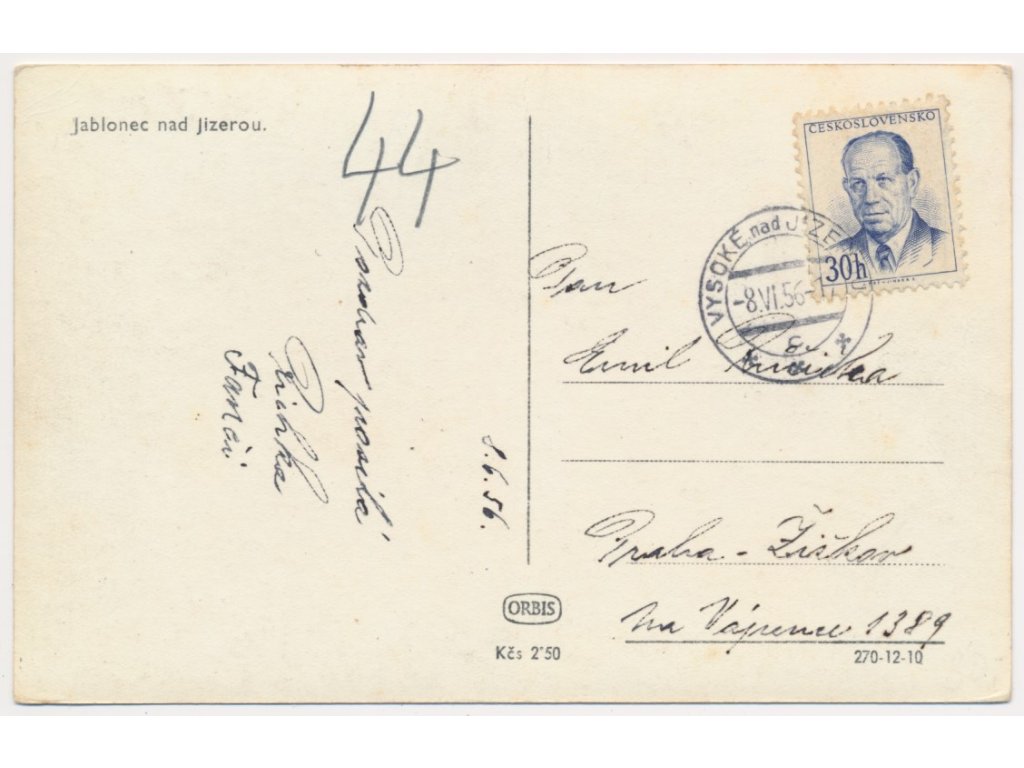 Jablonec nad Jizerou.
44
Pozdrav posílá
Fanči
8.6.56.
ČESKOSLOVENSKO
30h
VYSOKÉ nad JIZE
-8.VI.56-
Pan
Emil
Praha - Žižkov
Na Vápence 1389
ORBIS
Kčs 2˙50
270-12-10